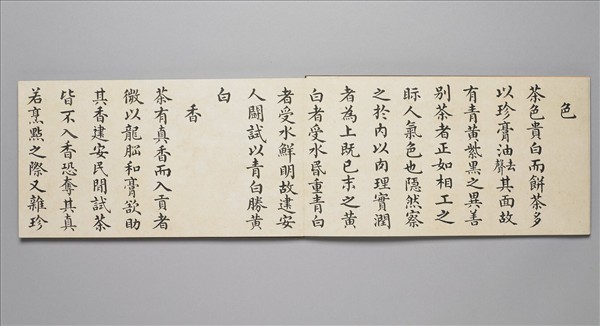 色
茶色貴白而餅茶多
以珍膏油去聲其面故
有青黃紫黑之異善
別茶者正如相工之
眎人氣色也隱然察
之於內以肉理實潤
者為上既已末之黃
白者受水昬重青白
者受水鮮明故建安
人闘試以青白勝黃
白
香
茶有真香而入貢者
微以龍脳和膏欲助
其香建安民間試茶
皆不入香恐奪其真
若烹點之際又雜珍